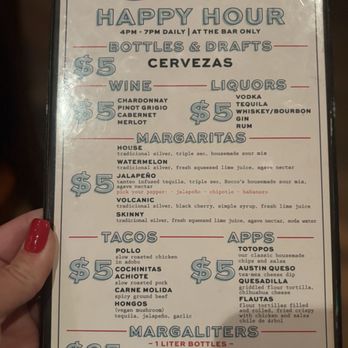 HAPPY HOUR
4PM - 7PM DAILY | AT THE BAR ONLY
BOTTLES & DRAFTS
$5 CERVEZAS
WINE
$5
CHARDONNAY
PINOT GRIGIO
CABERNET
MERLOT
LIQUORS
$5
VODKA
TEQUILA
WHISKEY/BOURBON
GIN
RUM
MARGARITAS
$5
HOUSE
tradicional silver, triple sec, housemade sour mix
WATERMELON
tradicional silver, fresh squeezed lime juice, agave nectar
JALAPEÑO
tanteo infused tequila, triple sec, Rocco's housemade sour mix,
agave nectar
pick your pepper: - jalapeño - chipotle - habanero
VOLCANIC
tradicional silver, black cherry, simple syrup, fresh lime juice
SKINNY
tradicional silver, fresh squeezed lime juice, agave nectar, soda water
TACOS
$5
POLLO
slow roasted chicken
in adobo
COCHINITAS
ACHIOTE
slow roasted pork
CARNE MOLIDA
spicy ground beef
HONGOS
(vegan mushroom)
tequila, jalapeño, garlic
APPS
$5
TOTOPOS
our classic housemade
chips and salsa
AUSTIN QUESO
tex-mex cheese dip
QUESADILLA
griddled flour tortilla,
chihuahua cheese
FLAUTAS
flour tortillas filled
and rolled, fried crispy
with chicken and salsa
chile de árbol
MARGALITERS
- 1 LITER BOTTLES -